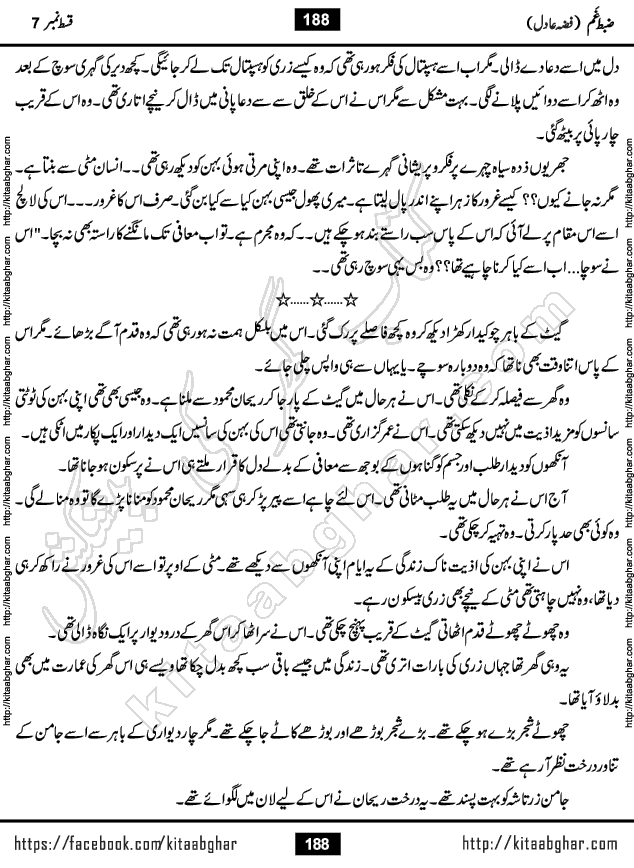 ضبطِ غم (فضہ عادل)
188
قسط نمبر 7
دل میں اسے دعا دے ڈالی۔ مگر اب اسے ہسپتال کی فکر ہو رہی تھی کہ وہ کیسے زری کو ہسپتال تک لے کر جائیگی۔ کچھ دیر کی گہری سوچ کے بعد
وہ اٹھ کر اسے دوائیں پلانے لگی۔ بہت مشکل سے مگر اس نے اس کے خلق سے سے دعا پانی میں ڈال کر نیچے اتاری تھی۔ وہ اس کے قریب
چارپائی پر بیٹھ گئی۔
جھریوں ذدہ سیاہ چہرے پر فکر و پریشانی گہرے تاثرات تھے۔ وہ اپنی مرتی ہوئی بہن کو دیکھ رہی تھی۔۔ انسان مٹی سے بنتا ہے۔
مگر نہ جانے کیوں؟؟ کیسے غرور کا زہر اپنے اندر پال لیتا ہے۔ میری پھول جیسی بہن کیا سے کیا بن گئی۔ صرف اس کا غرور۔۔۔ اس کی لالچ
اسے اس مقام پر لے آئی کہ اس کے پاس سب راستے بند ہو چکے ہیں۔۔ کہ وہ مجرم ہے۔ تو اب معافی تک مانگنے کا راستہ بھی نہ بچا۔" اس
نے سوچا... اب اسے کیا کرنا چاہیے تھا؟؟ وہ بس یہی سوچ رہی تھی۔۔
☆......☆......☆
گیٹ کے باہر چوکیدار کھڑا دیکھ کر وہ کچھ فاصلے پر رک گئی۔ اس میں بلکل ہمت نہ ہو رہی تھی کہ وہ قدم آگے بڑھائے۔ مگر اس
کے پاس اتنا وقت بھی نا تھا کہ وہ دوبارہ سوچے۔ یا یہاں سے ہی واپس چلی جائے۔
وہ گھر سے فیصلہ کر کے نکلی تھی۔ اس نے ہر حال میں گیٹ کے پار جا کر ریحان محمود سے ملنا ہے۔ وہ جیسی بھی تھی اپنی بہن کی ٹوٹتی
سانسوں کو مزید اذیت میں نہیں دیکھ سکتی تھی۔ اس نے عمر گزاری تھی۔ وہ جانتی تھی اس کی بہن کی سانسیں ایک دیدار اور ایک پکار میں اٹکی ہیں۔
آنکھوں کو دیدار طلب اور جسم کو گناہوں کے بوجھ سے معافی کے بدلے دل کا قرار ملتے ہی اس نے پر سکون ہو جانا تھا۔
آج اس نے ہر حال میں یہ طلب مٹانی تھی۔ اس لئے چاہے اسے پیر پڑ کر ہی سہی مگر ریحان محمود کو منانا پڑے گا تو وہ منا لے گی۔
وہ کوئی بھی حد پار کرتی۔ وہ تہیہ کر چکی تھی۔
اس نے اپنی بہن کی اذیت ناک زندگی کے یہ ایام اپنی آنکھوں سے دیکھے تھے۔ مٹی کے اوپر تو اسے اس کی غرور نے راکھ کر ہی
دیا تھا، وہ نہیں چاہتی تھی مٹی کے نیچے بھی زری بے سکون رہے۔
وہ چھوٹے چھوٹے قدم اٹھاتی گیٹ کے قریب پہنچ چکی تھی۔ اس نے سر اٹھا کر اس گھر کے در و دیوار پر ایک نگاہ ڈالی تھی۔
یہ وہی گھر تھا جہاں زری کی بارات اتری تھی۔ زندگی میں جیسے باقی سب کچھ بدل چکا تھا ویسے ہی اس گھر کی عمارت میں بھی
بدلاؤ آیا تھا۔
چھوٹے شجر بڑے ہو چکے تھے۔ بڑے شجر بوڑھے اور بوڑھے کاٹے جا چکے تھے۔ مگر چار دیواری کے باہر سے اسے جامن کے
تناور درخت نظر آ رہے تھے۔
جامن زرتاشہ کو بہت پسند تھے۔ یہ درخت ریحان نے اس کے لیے لان میں لگوائے تھے۔
کتاب گھر کی پیشکش
kitaabghar.com
http://kitaabghar.com http://kitaabghar.com http://kitaabghar.com http://kitaabghar.com http://kitaabghar.com http://kitaabghar.com
http://kitaabghar.com http://kitaabghar.com http://kitaabghar.com http://kitaabghar.com http://kitaabghar.com http://kitaabghar.com
https://facebook.com/kitaabghar
188
http://kitaabghar.com